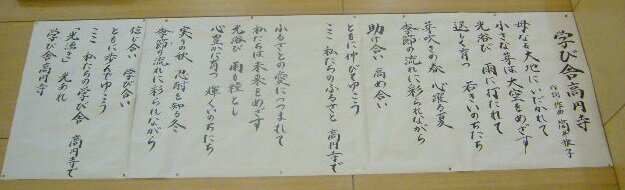 学び舎高円寺
作詞・作曲
母なる大地にいだかれて
小さな芽は大空をめざす
光浴び 雨に打たれて
逞しく育つ 若きいのちたち
芽吹きの春 心躍る夏
季節の流れに彩られながら
助け合い 高め合い
ともに伸びてゆこう
ここ 私たちのふるさと 高円寺で
ふるさとの愛につつまれて
私たちは未来をめざす
光浴び 雨も糧とし
心豊かに育つ 輝くいのちたち
実りの秋 忍耐を知る冬
季節の流れに彩られながら
信じ合い 学び合い
ともに歩んでゆこう
ここ 私たちの学び舎 高円寺で
光満ち 光あれ
学び舎高円寺